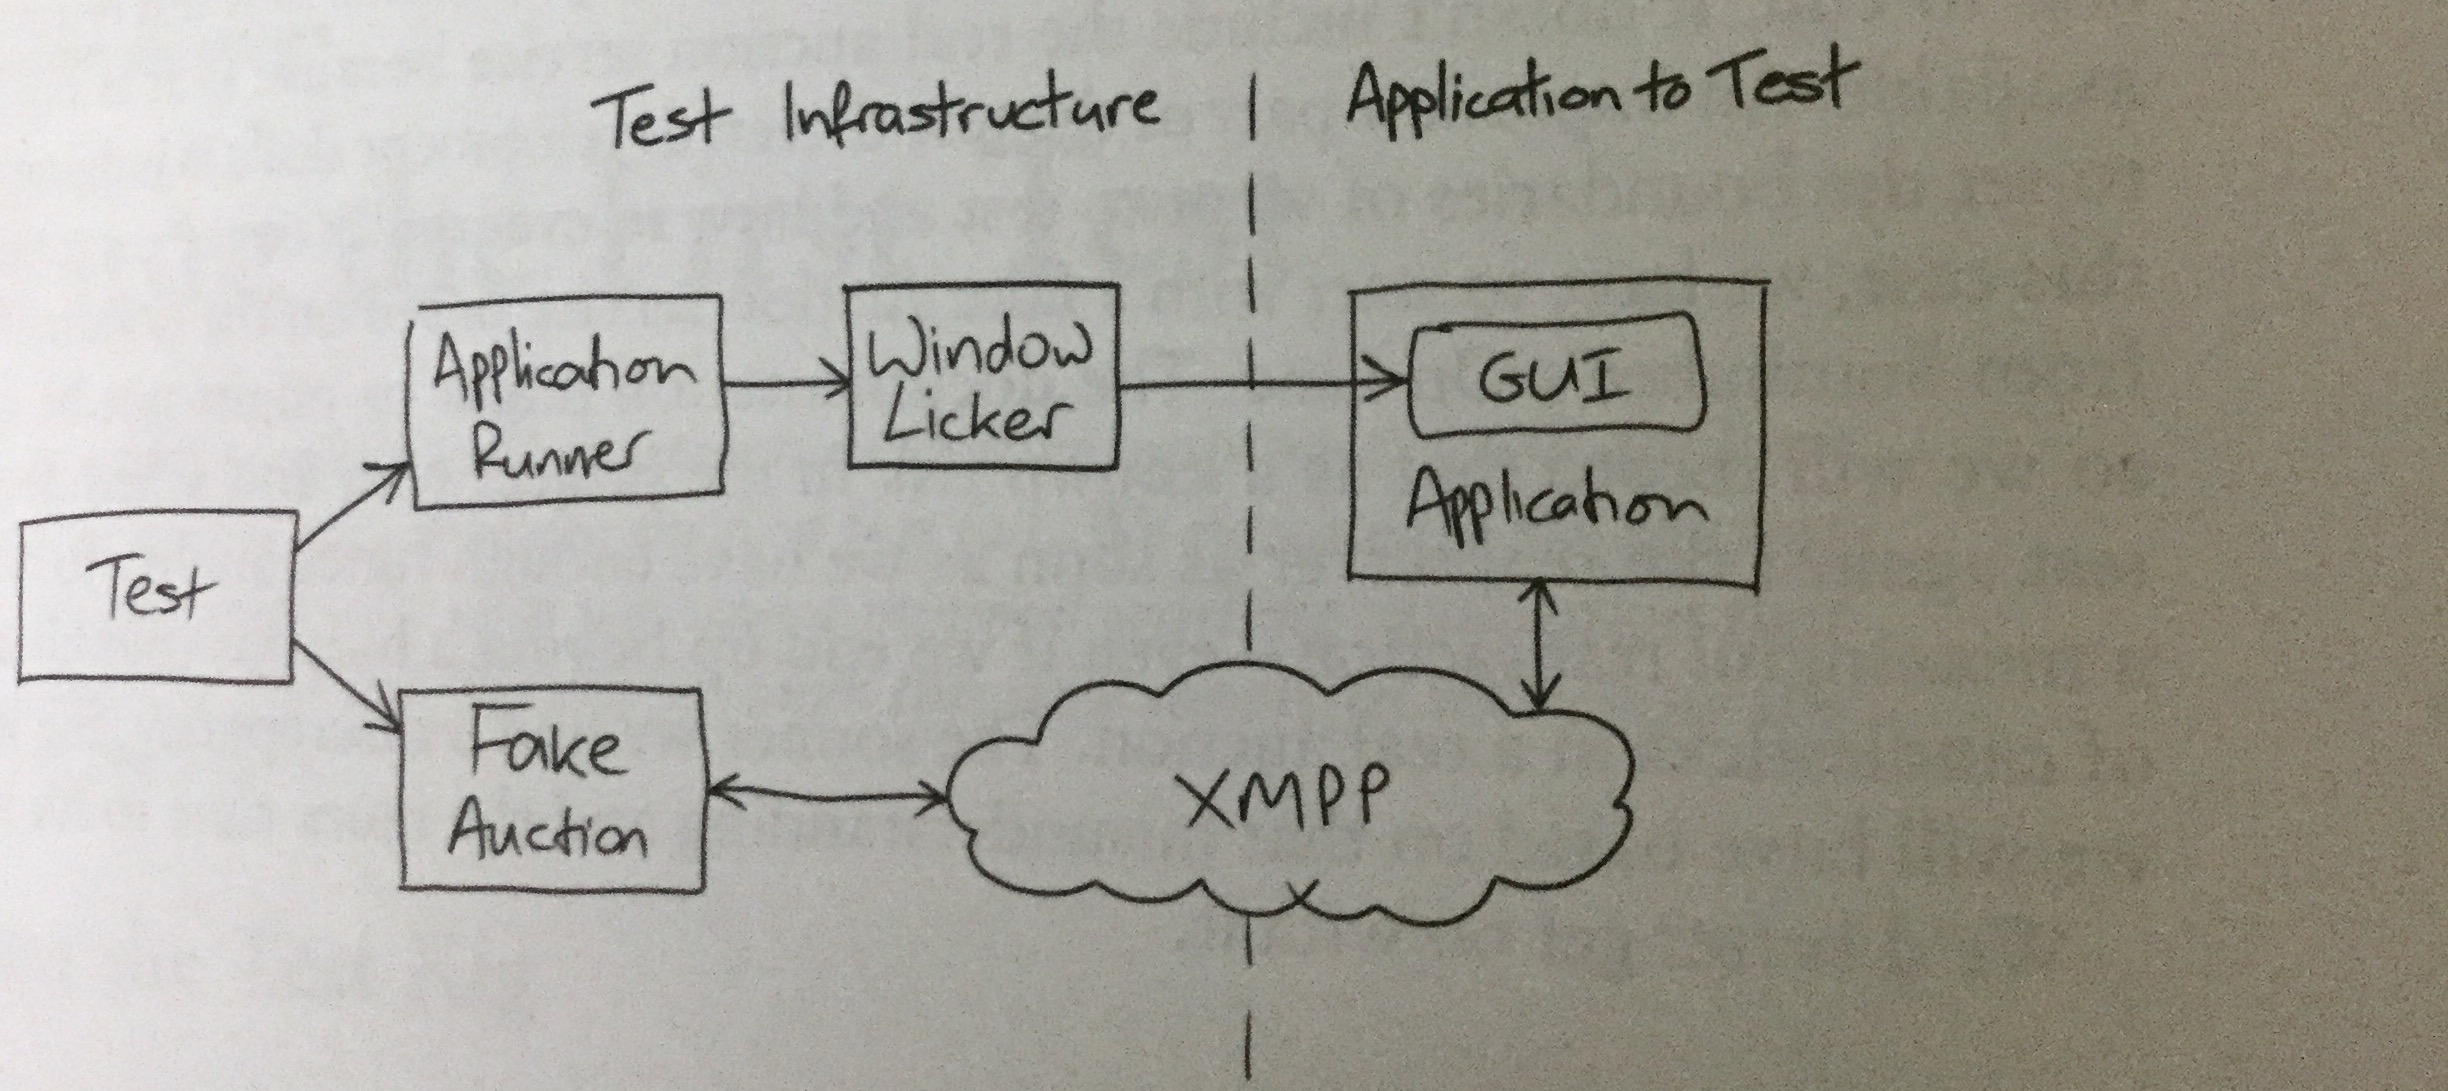 Test Infrastructure
Application to Test
Application
Runner
Window
Licker
GUI
Application
Test
Fake
Auction
XMPP